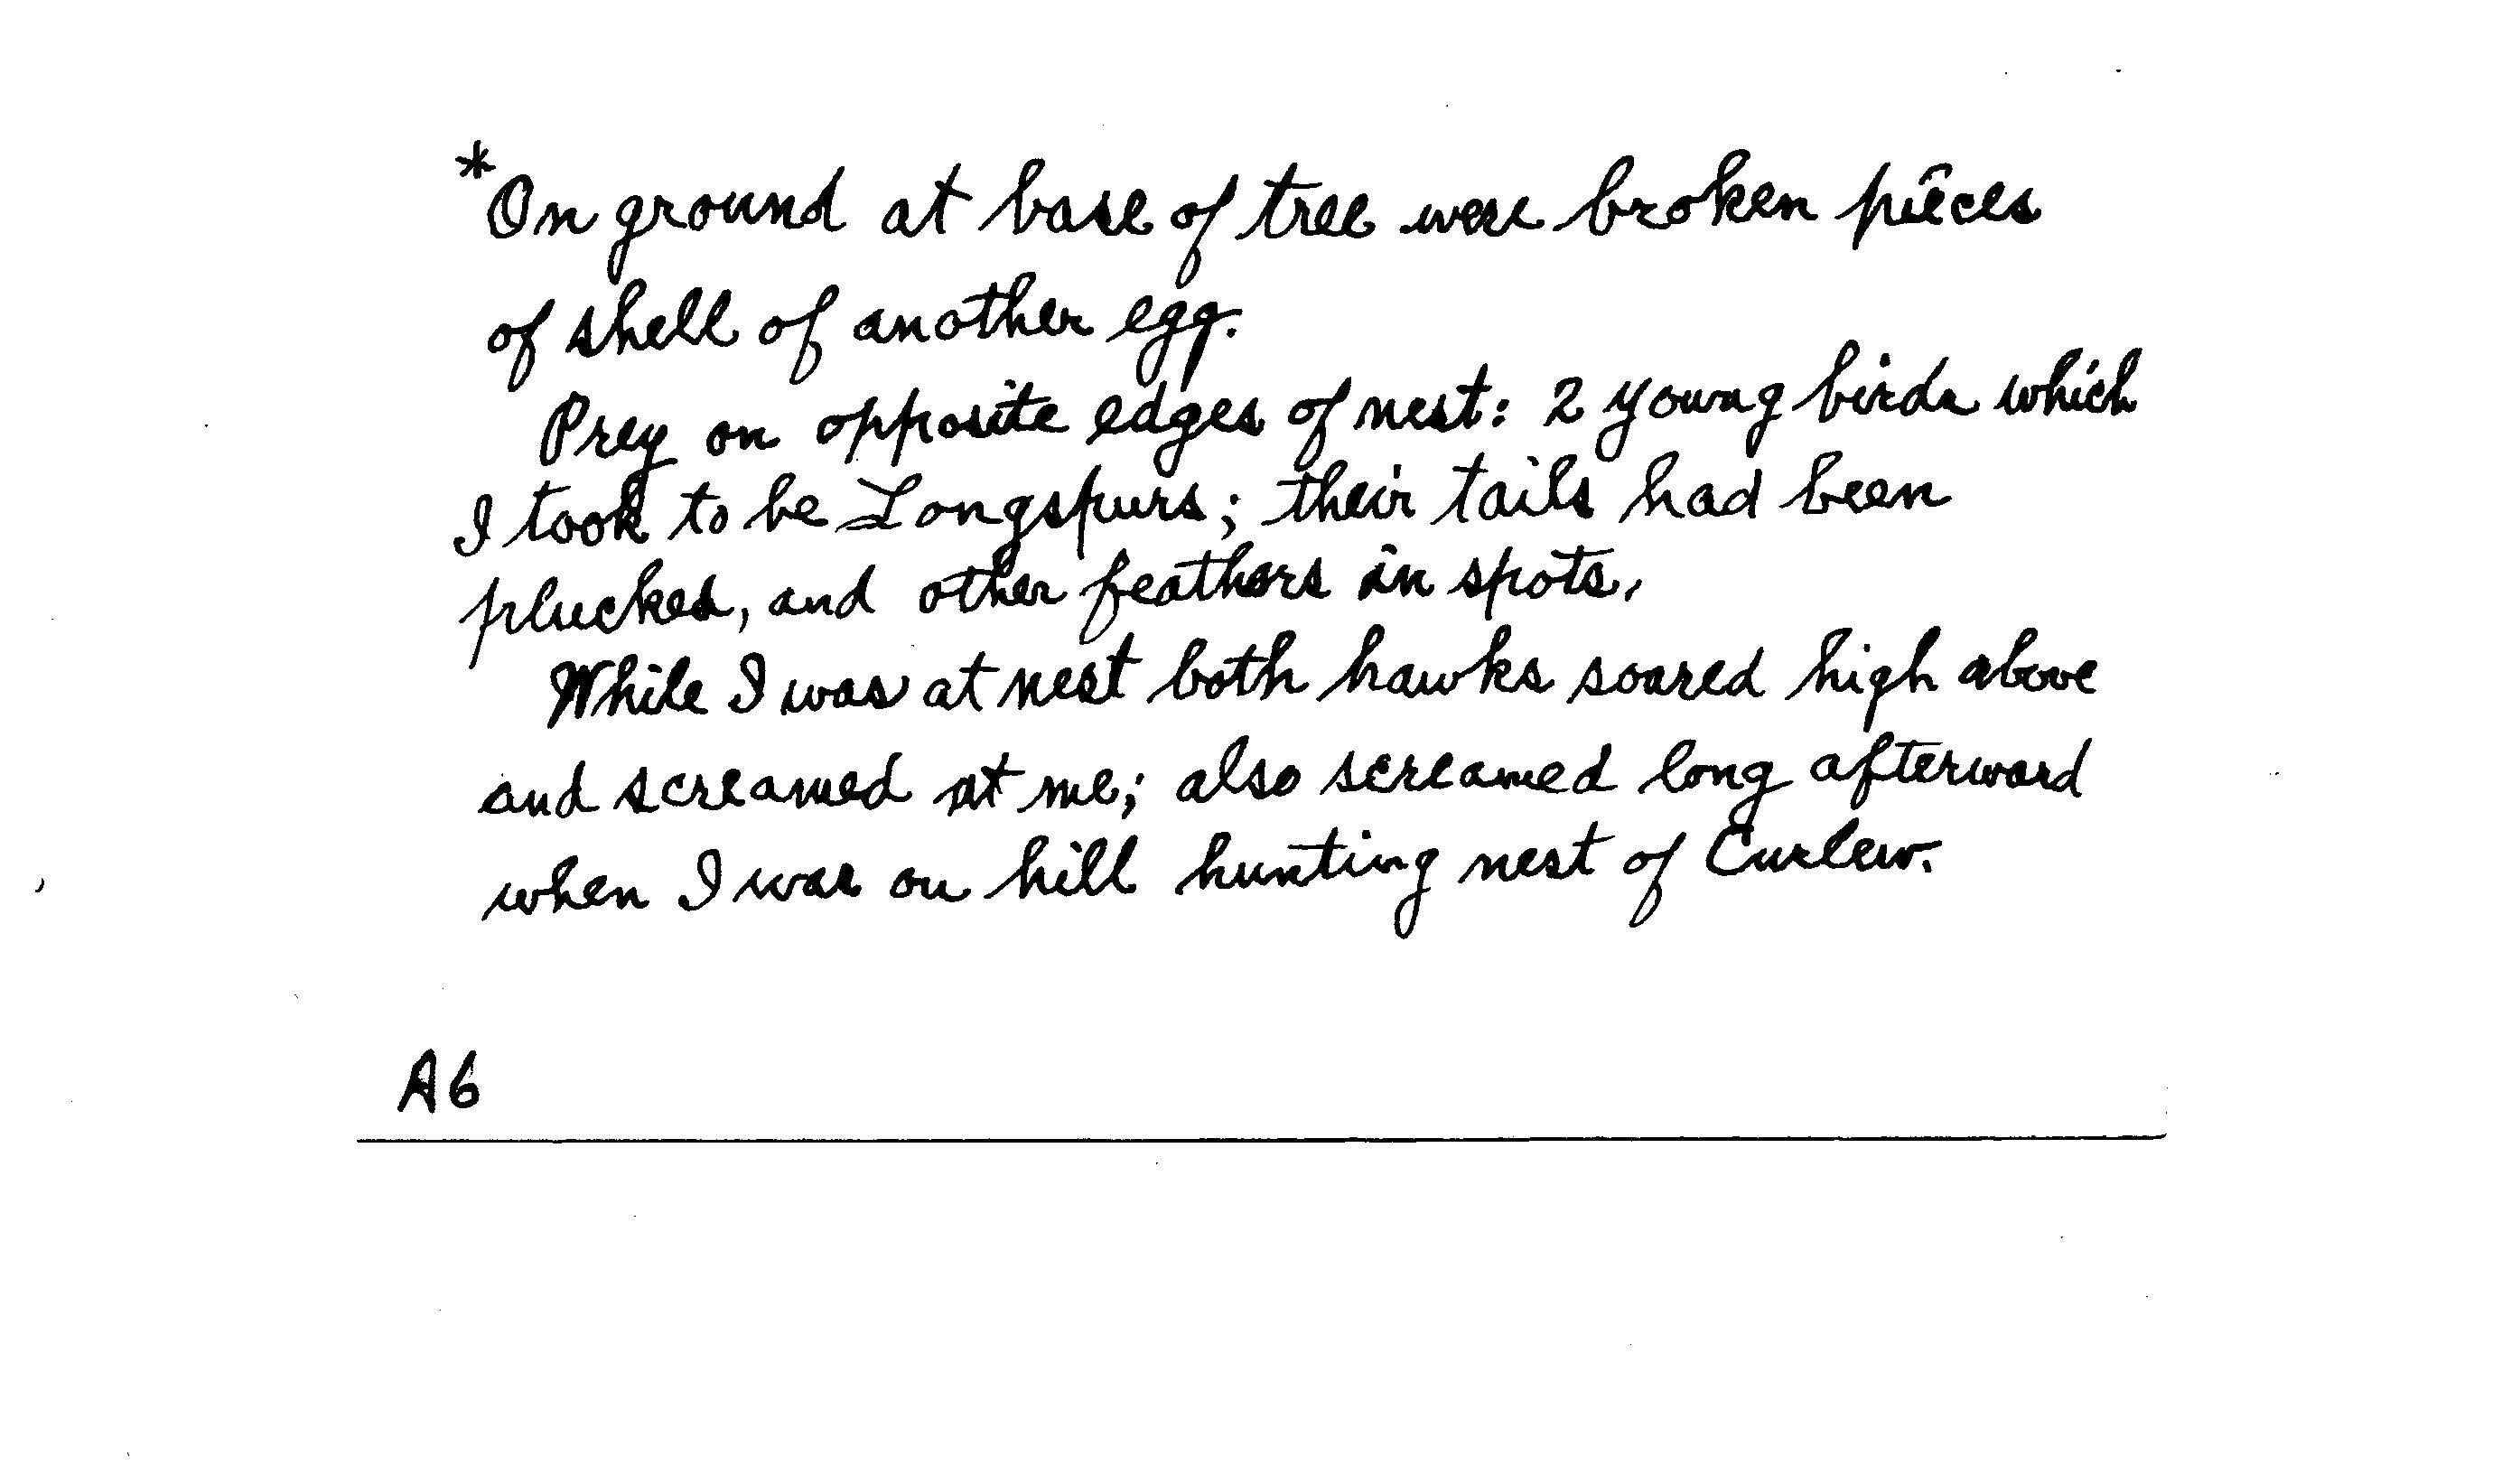 *On ground at base of tree were broken pieces
of shell of another egg.
Prey on opposite edges of nest: 2 young birds which
I took to be Longspurs; their tails had been
plucked, and other feathers in spots.
While I was at nest both hawks soared high above
and screamed at me; also screamed long afterward
when I was on hill hunting nest of Curlew.
A6